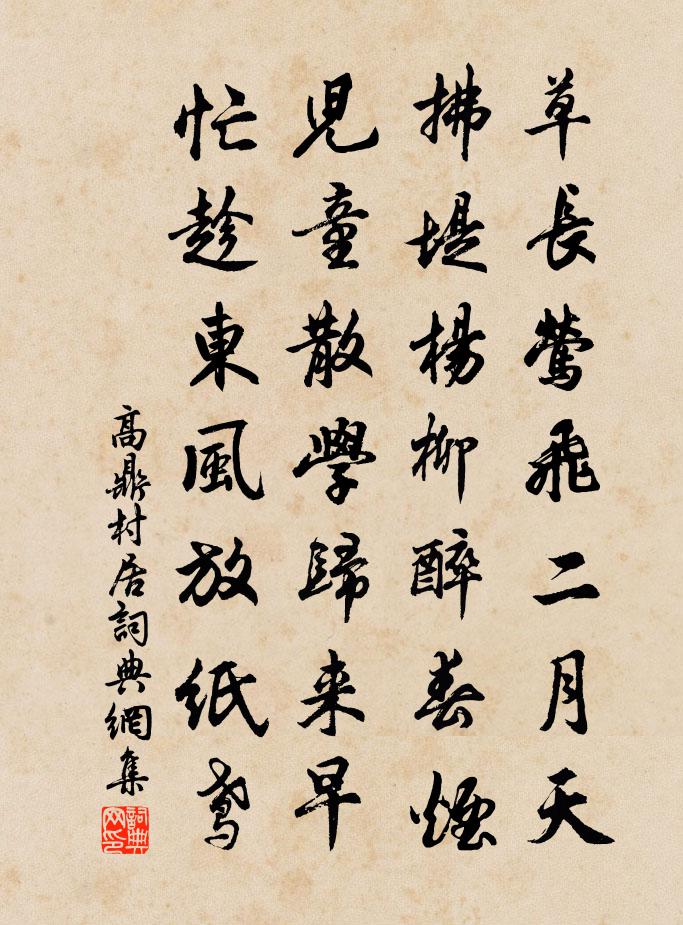 草長鶯飛二月天
拂堤楊柳醉春煙
兒童散學歸来早
忙趁東風放紙鳶
高鼎村居詞典網集
詞典網印